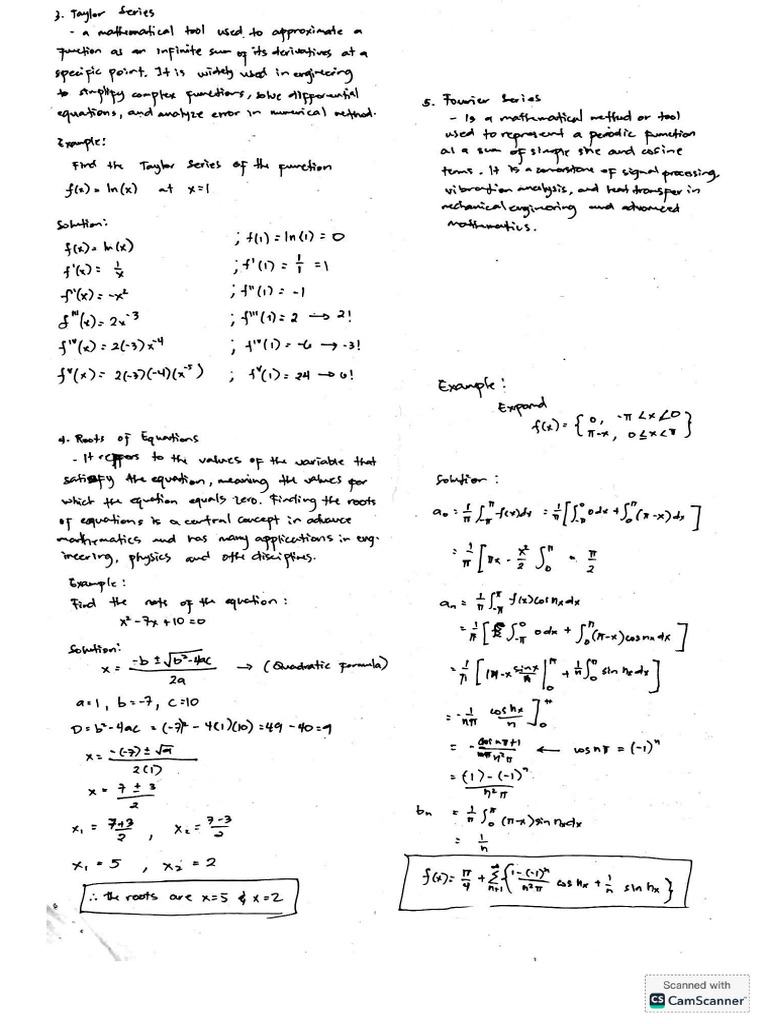 3. Taylor Series
- a mathematical tool used to approximate a
function as an infinite sum of its derivatives at a
specific point. It is widely used in engineering
to simplify complex functions, solve differential
equations, and analyze error in numerical method.
Example:
Find the Taylor Series of the function
f(x) = ln(x) at x=1
Solution:
f(x) = ln(x) ; f(1) = ln(1) = 0
f'(x) = 1/x ; f'(1) = 1/1 = 1
f''(x) = -x² ; f''(1) = -1
f'''(x) = 2x⁻³ ; f'''(1) = 2 → 2!
f''''(x) = 2(-3)x⁻⁴ ; f''''(1) = -6 → -3!
fᵛ(x) = 2(-3)(-4)(x⁻⁵) ; fᵛ(1) = 24 → 6!
4. Roots of Equations
- It reffers to the values of the variable that
satisfy the equation, meaning the values for
which the equation equals zero. Finding the roots
of equations is a central concept in advance
mathematics and has many applications in eng-
ineering, physics and othe disciplines.
Example:
Find the roots of the equation:
x² - 7x + 10 = 0
Solution:
x = (-b ± √(b²-4ac)) / 2a → (Quadratic formula)
a=1, b=-7, c=10
D = b²-4ac = (-7)² - 4(1)(10) = 49 - 40 = 9
x = (-(-7) ± √9) / 2(1)
x = (7 ± 3) / 2
x₁ = (7+3)/2 , x₂ = (7-3)/2
x₁ = 5 , x₂ = 2
∴ the roots are x=5 & x=2
5. Fourier Series
- Is a mathematical method or tool
used to represent a periodic function
as a sum of simple sine and cosine
terms. It is a cornerstone of signal processing,
vibration analysis, and heat transfer in
mechanical engineering and advanced
mathematics.
Example:
Expand
f(x) = { 0, -π < x < 0
π-x, 0 ≤ x < π }
Solution:
a₀ = 1/π ∫_-π^π f(x)dx = 1/π [∫_-π^0 0dx + ∫_0^π (π-x)dx]
= 1/π [πx - x²/2 ∫_0^π = π/2
aₙ = 1/π ∫_-π^π f(x)cos nx dx
= 1/π [∫_-π^0 0dx + ∫_0^π (π-x)cos nx dx]
= 1/π [(π-x sin x/n |_0^π + 1/n ∫_0^π sin nx dx]
= -1/nπ cos nx/n ]_0^π
= - cos nπ+1 / n²π ← cos nπ = (-1)ⁿ
= (1)-(-1)ⁿ / n²π
bₙ = 1/π ∫_0^π (π-x) sin nx dx
= 1/n
f(x) = π/4 + Σ_n=1^∞ { 1-(-1)ⁿ / n²π cos nx + 1/n sin nx }
Scanned with
CS CamScanner